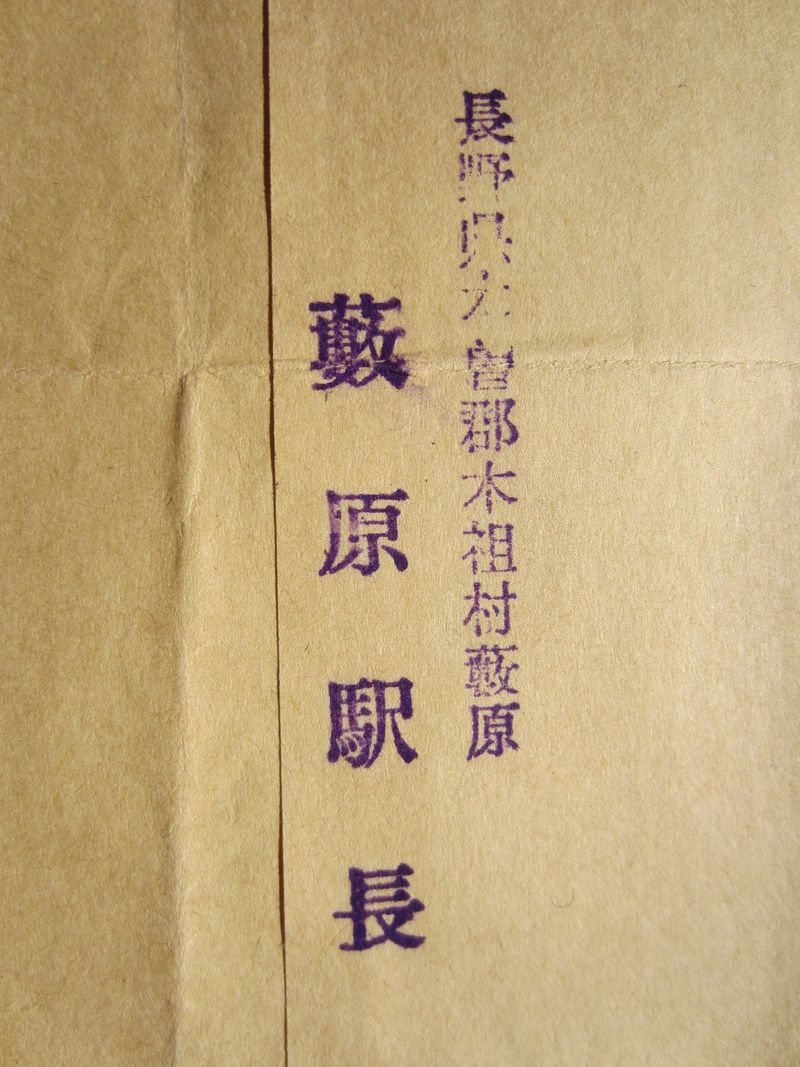 長野県木曽郡木祖村藪原
藪原駅長